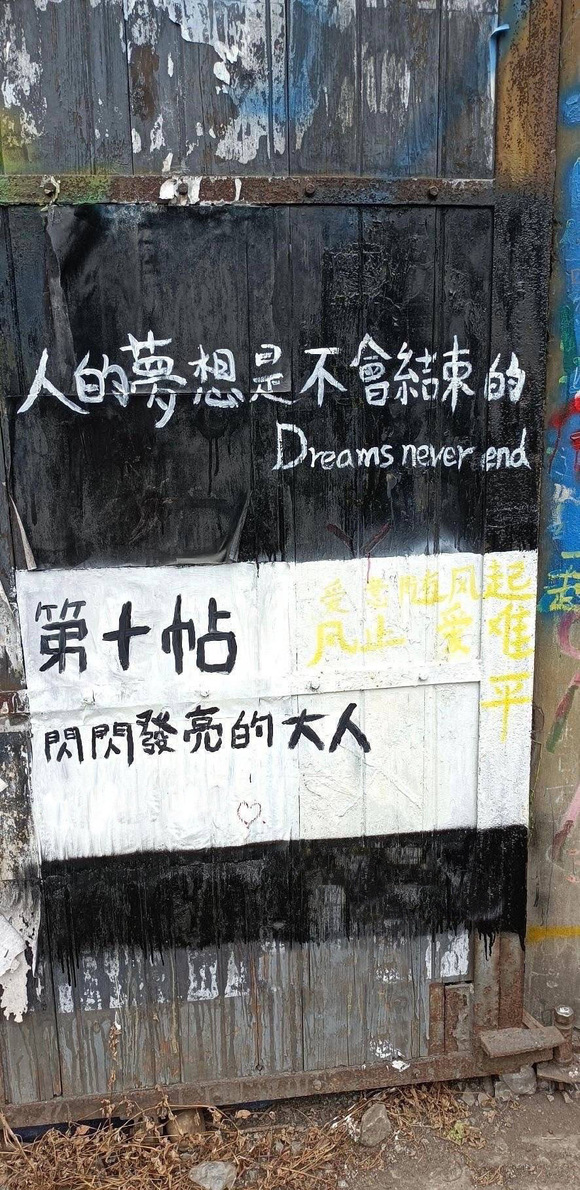 人的夢想是不會結束的
Dreams never end
第十帖
閃閃發亮的大人
愛意隨风起
风止愛難平